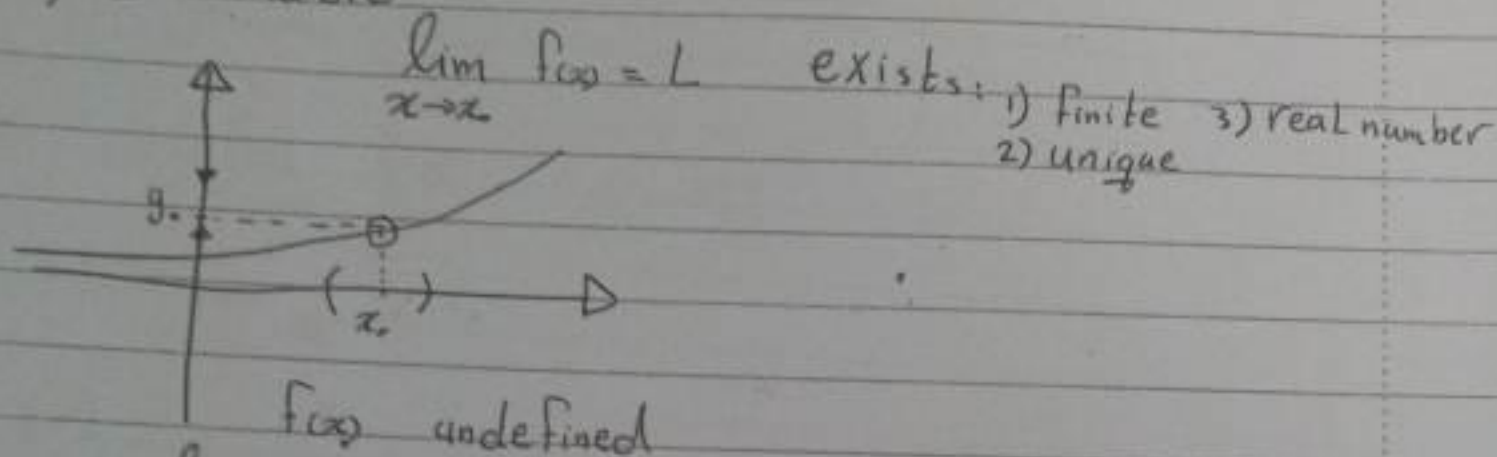 lim f(x) = L exists: 1) finite 3) real number
x→x₀ 2) unique
y₀
( x₀ )
f(x) undefined